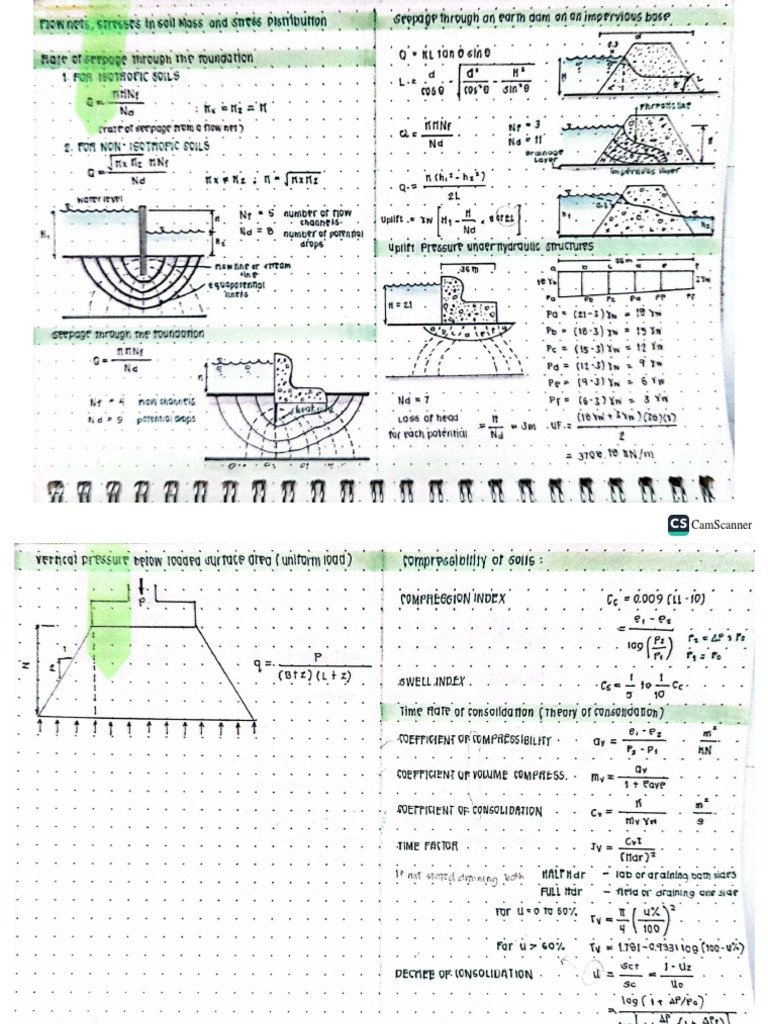 Flow nets, stresses in soil Mass and Stress Distribution
Rate of seepage through the foundation
1. FOR ISOTROPIC SOILS
Q = KHNf / Nd ; Kx = Kz = K
(rate of seepage from a flow net)
2. FOR NON-ISOTROPIC SOILS
Q = √KxKz HNf / Nd Kx ≠ Kz ; K = √KxKz
water level
H1
H
H2
Nf = 5 number of flow channels
Nd = 8 number of potential drops
flow line or stream line
equipotential lines
Seepage through the foundation
Q = KHNf / Nd
Nf = 4 flow channels
Nd = 9 potential drops
sheet pile
Seepage through an earth dam on an impervious base
Q = KL tan θ sin θ
L = d / cos θ - √ d² / cos²θ - H² / sin²θ
d
0.3
H
Q = KHNf / Nd
Nf = 3
Nd = 11
Phreatic line
drainage layer
impervious layer
Q = K(h1² - h2²) / 2L
h1
h2
Uplift = γw [ H1 - H / Nd
Uplift Pressure under hydraulic structures
36 m
H = 21
36m
a b c d e f
18 γw
3γw
Pa Pb Pc Pd Pe Pf
Pa = (21-3) γw = 18 γw
Pb = (18-3) γw = 15 γw
Pc = (15-3) γw = 12 γw
Pd = (12-3) γw = 9 γw
Pe = (9-3) γw = 6 γw
Pf = (6-3) γw = 3 γw
Nd = 7
Loss of head for each potential = H / Nd = 3m
UF = (18 γw + 3γw)(36)(1) / 2
= 3708.18 kN/m
CS CamScanner
Vertical pressure below loaded surface area (uniform load)
P
1
2
z
q = P / (B+z)(L+z)
Compressibility of Soils :
COMPRESSION INDEX Cc = 0.009 (LL-10)
= e1 - e2 / log(P2 / P1)
P2 = ΔP + Po
P1 = Po
SWELL INDEX . Cs = 1/5 to 1/10 Cc
Time Rate of consolidation (Theory of consolidation)
COEFFICIENT OF COMPRESSIBILITY av = e1 - e2 / P2 - P1 m² / kN
COEFFICIENT OF VOLUME COMPRESS. mv = av / 1 + eave
COEFFICIENT OF CONSOLIDATION Cv = K / mv γw m² / s
TIME FACTOR Tv = Cvt / (Hdr)²
If not stated draining both
HALF Hdr - lab or draining both sides
FULL Hdr - field or draining one side
For U = 0 to 60% Tv = π/4 (U% / 100)²
For U > 60% Tv = 1.781 - 0.933 log (100 - U%)
DEGREE OF CONSOLIDATION U = SCT / SC = 1 - Uz / Uo
= log (1 + ΔP/Po)